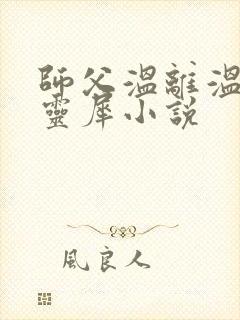 師父溫離溫
靈犀小說
風良人